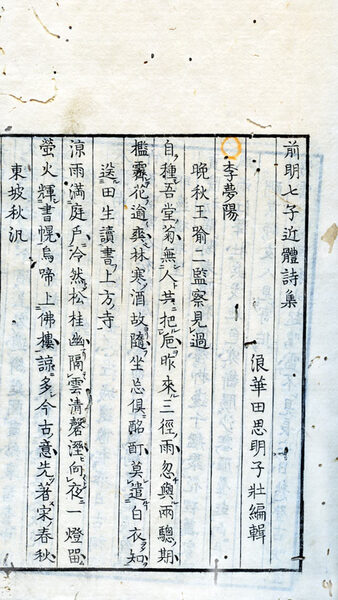 前明七子近體詩集
浪華田思明子壯編輯
李夢陽
晩秋王喻二監察見過
自種吾堂菊無人共把巵昨來三徑雨忽與兩驄期
檻霽花逾爽林寒酒故隨坐忘俱酩酊莫遣白衣知
送田生讀書上方寺
涼雨滿庭戶泠然松桂幽隔雲清磬溼向夜一燈畱
螢火輝書幌烏啼上佛樓諒多今古意先著宋春秋
東坡秋汎